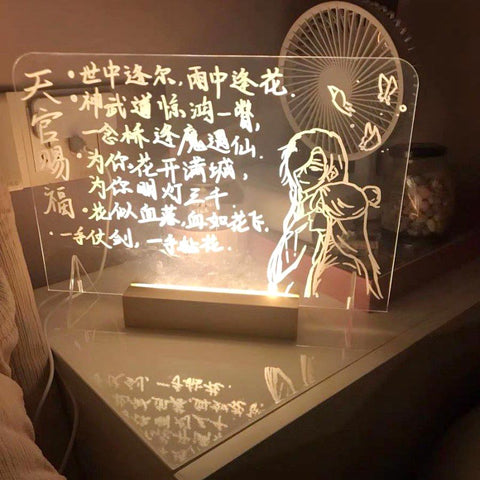 天官赐福
·世中逢尔,雨中逢花.
·神武道惊鸿一瞥,
一念桥逢魔遇仙.
·为你花开满城,
为你明灯三千.
·花似血落,血如花飞.
·一手仗剑,一手拈花.